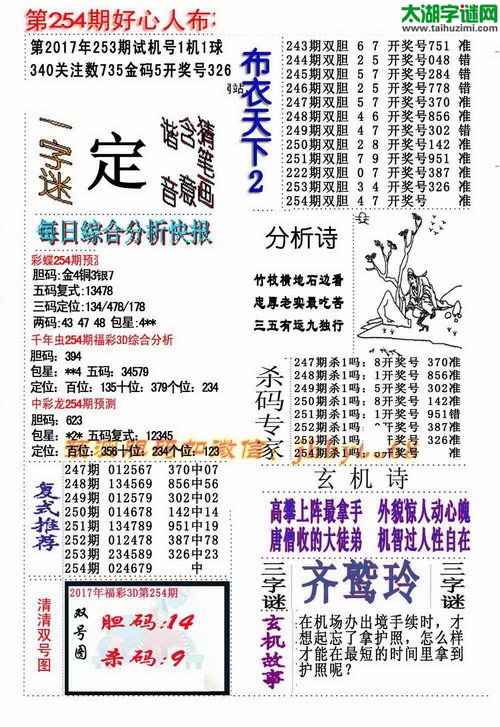 第254期好心人布
太湖字谜网
www.taihuzimi.com
第2017年253期试机号1机1球
340关注数735金码5开奖号326
网站
布衣天下2
243期双胆 6 7 开奖号751 准
244期双胆 2 5 开奖号048 错
245期双胆 2 4 开奖号284 准
246期双胆 2 5 开奖号778 错
247期双胆 2 5 开奖号370 错
248期双胆 4 6 开奖号856 准
249期双胆 4 7 开奖号302 错
250期双胆 2 8 开奖号142 准
251期双胆 7 9 开奖号951 准
222期双胆 0 7 开奖号387 准
253期双胆 3 4 开奖号326 准
254期双胆 4 7 开奖号 准
一字迷
定
猜笔画
含薇
猪音
每日综合分析快报
彩蝶254期预测
胆码:金4铜3银7
五码复式:13478
三码定位:134/478/178
两码:43 47 48 包星:4**
千年虫254期福彩3D综合分析
胆码: 394
包星: **4 五码: 34579
定位: 百位: 135十位: 379个位: 234
中彩龙254期预测
胆码: 623
包星: *2* 五码复式: 12345
定位: 百位: 356十位: 234个位: 123
分析诗
竹枝横地石边看
忠厚老实最吃苦
三五有运九独行
杀码专家
247期杀1吗: 8开奖号 370准
248期杀1吗: 1开奖号 856准
249期杀1吗: 5开奖号 302准
250期杀1吗: 8开奖号 142准
251期杀1吗: 1开奖号 951错
252期杀1吗: 开奖号 387准
253期杀1吗: 开奖号 326准
254期杀1吗: 开奖号 准
复式推荐
247期 012567 370中07
248期 134569 856中56
249期 012579 302中02
250期 014578 142中14
251期 134789 951中19
252期 013789 387中37
253期 234589 326中23
254期 024679 中
玄机诗
高攀上阵最拿手 外貌惊人动心魄
唐僧收的大徒弟 机智过人性自在
清清双号图
2017年福彩3D第254期
双号图
胆码:14
杀码:9
三字谜
齐鹫玲
三字谜
玄机故事
在机场办出境手续时，才
想起忘了拿护照，怎么样
才能在最短的时间里拿到
护照呢？